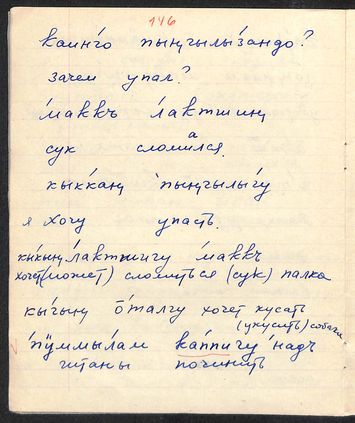 146
каинго́ пыңгылы́зандо?
зачем упал?
ма́ккъ ла́ктшиң
сук сломался.
кыкка́ң пыңгылы́гу
я хочу упасть.
кы́кың ла́ктшигу ма́ккъ
хочет (может) сломиться (сук) палка
кы́чың о́талгу хочет кусать
(укусить) собака
пӱммы́лам ка́ппигу надъ
штаны починить